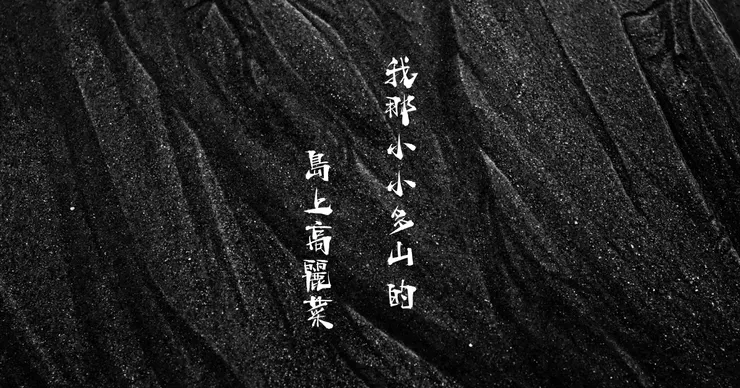 我那小小多山的
島上高麗菜